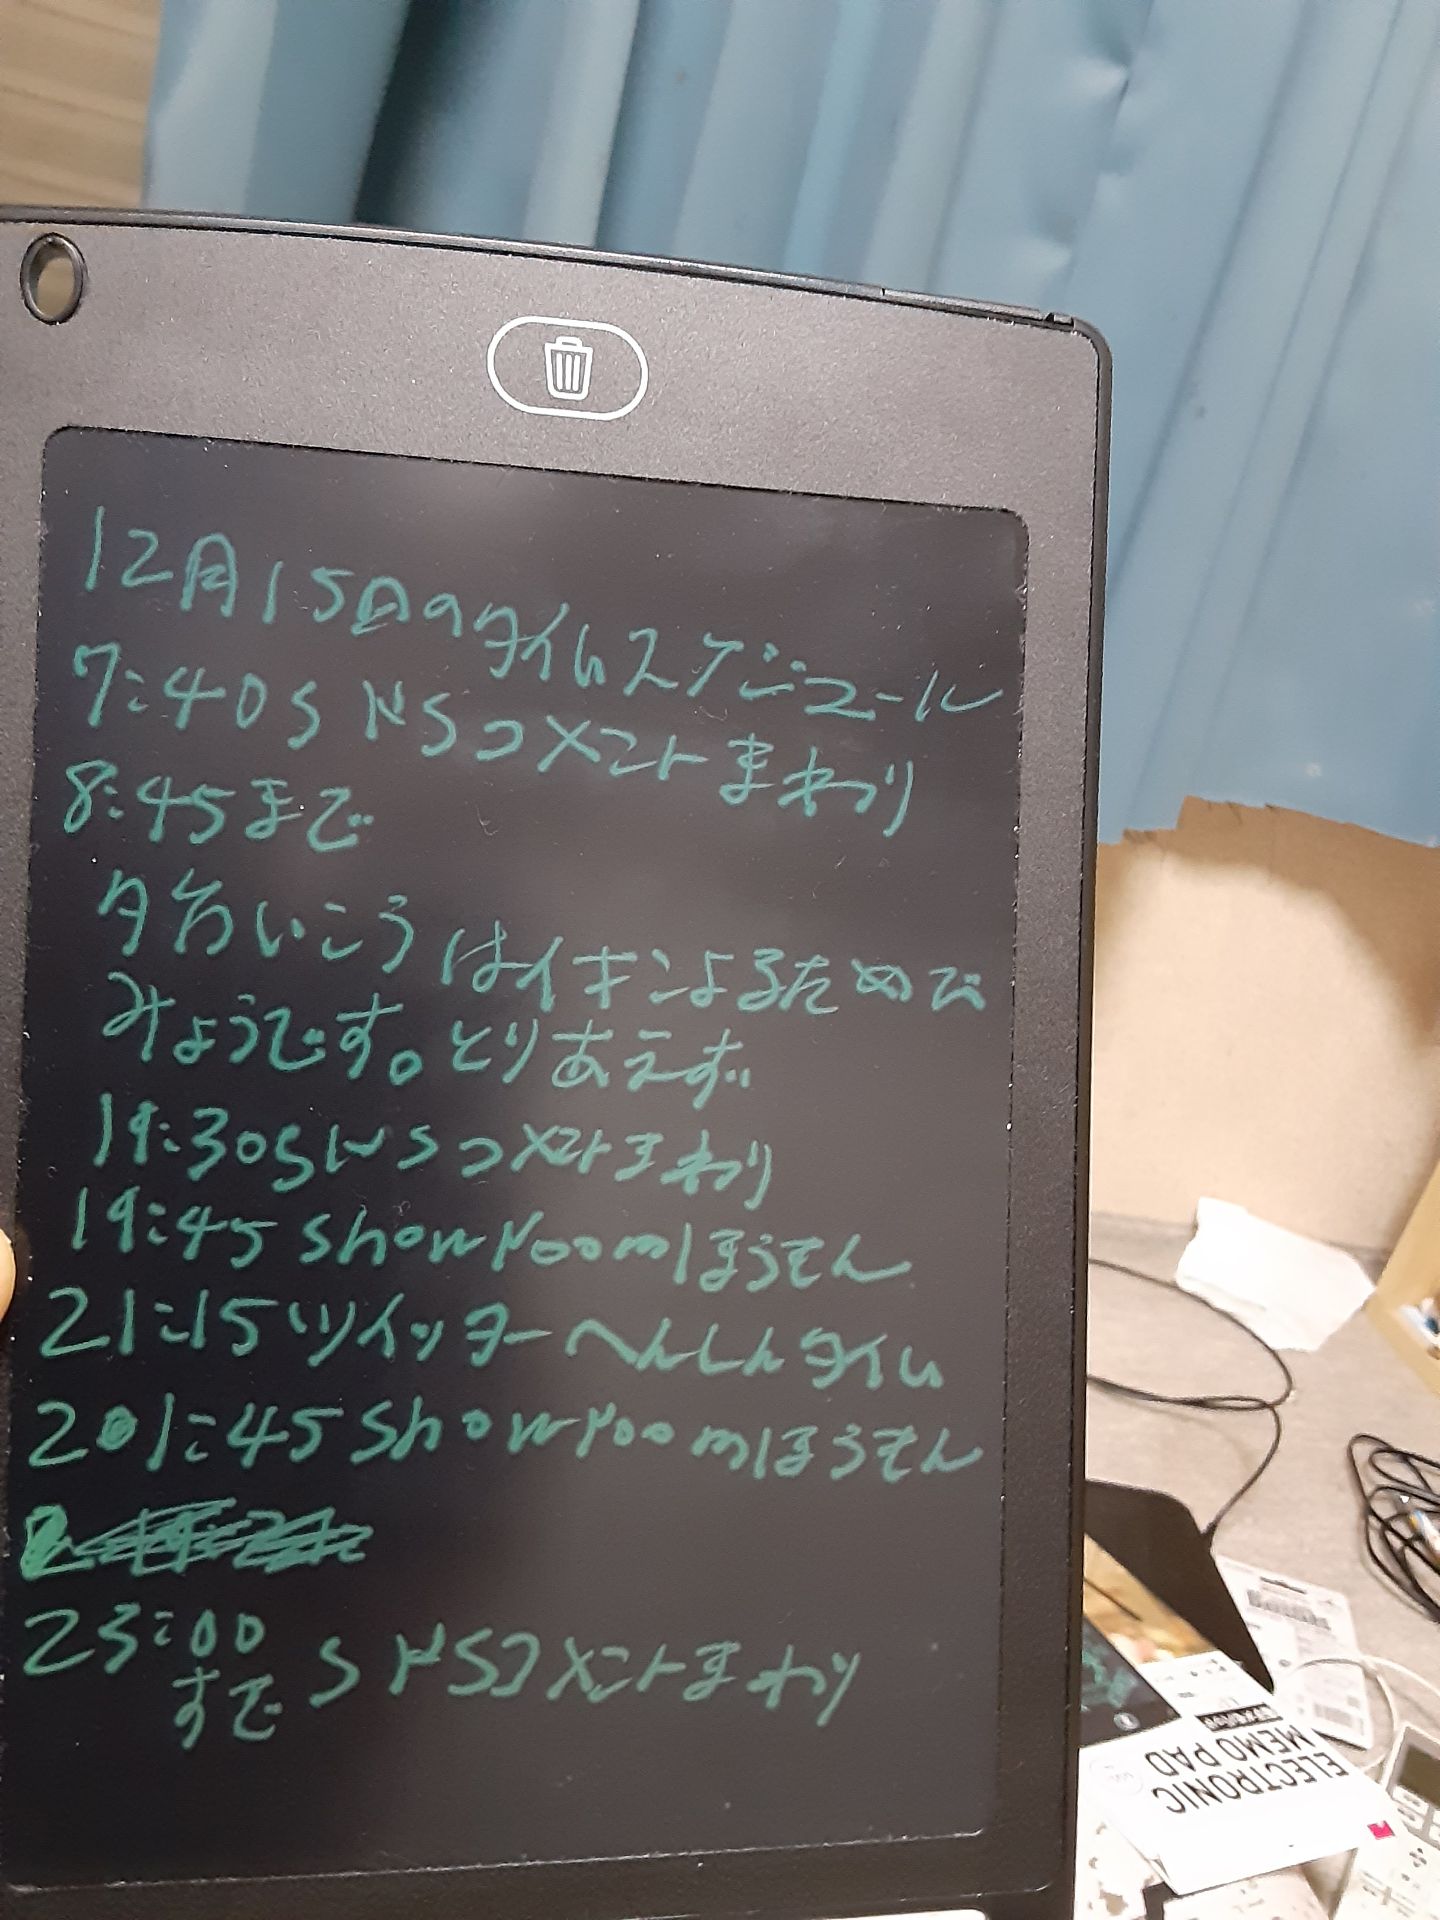 12月15日のタイムスケジュール
7:40SドSコメントまわり
8:45まで
夕方いこうはイキンよるためび
みょうです。とりあえず
19:30SドSコメントまわり
19:45 showroomほうそん
21:15ツイッターへんしんタイム
21:45 showroomほうそん
23:00 SドSコメントまわり
まで
ELECTRONIC
MEMO PAD